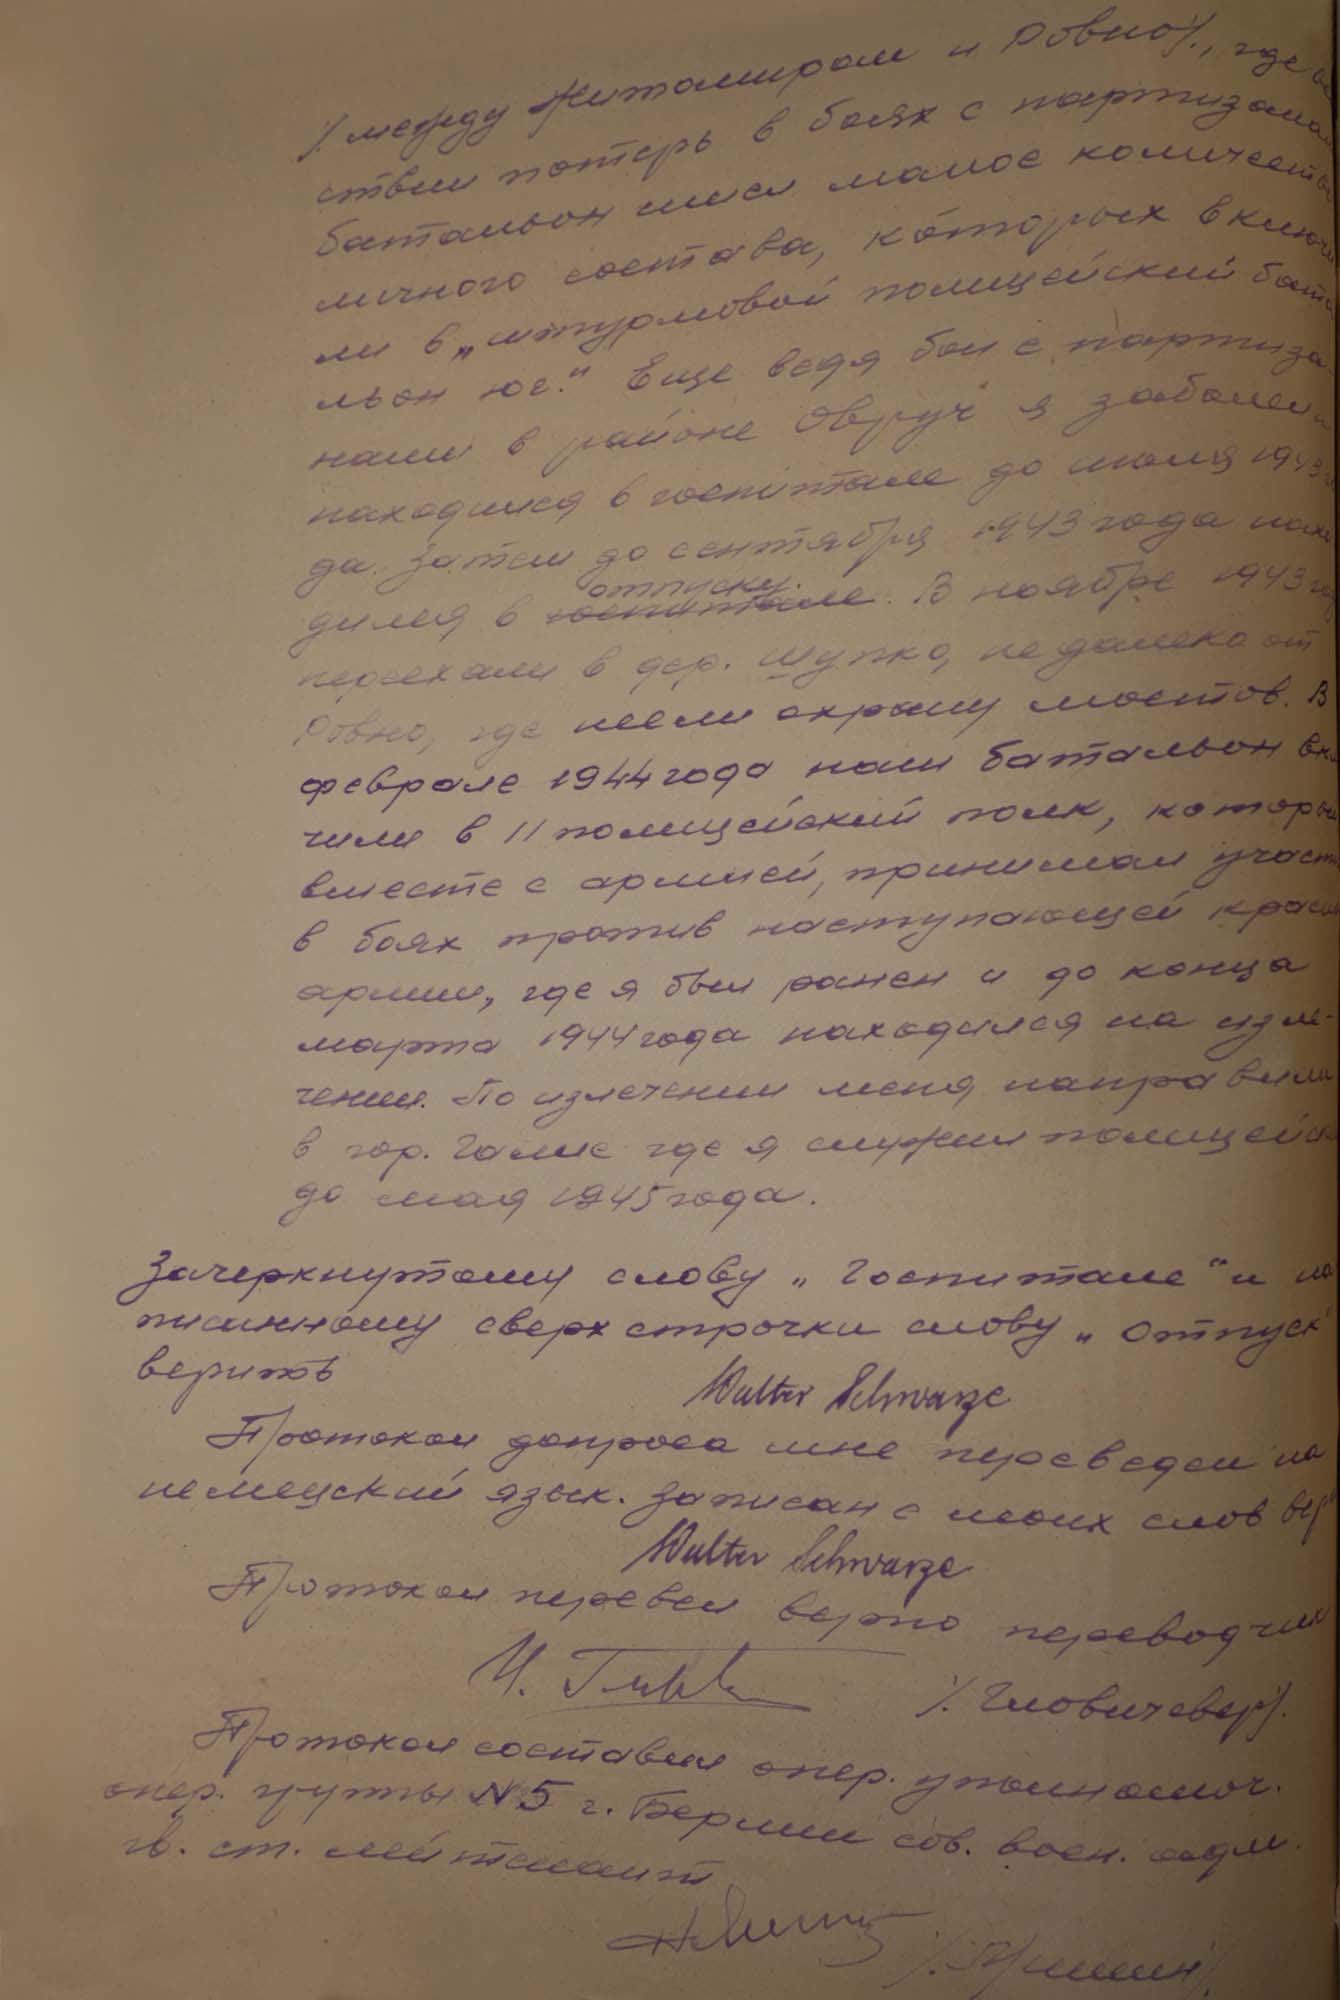 /между Житомиром и Ровно/, где
ствии потерь в боях с партизанам
батальон имел малое количеств
личного состава, которых включи
ли в „штурмовой полицейский бата
льон юг." Еще ведя бои с партиза
нами в районе Овруч я заболел и
находился в госпитале до июля 1943 го
да. Затем до сентября 1943 года нахо
дился в госпитале отпуску. В ноябре 1943 го
переехали в дер. Шупко, недалеко от
Ровно, где несли охрану мостов. В
феврале 1944 года наш батальон вкл
чили в 11 полицейский полк, которы
вместе с армией, принимал участ
в боях против наступающей красн
армии, где я был ранен и до конца
марта 1944 года находился на изле-
чении. По излечении меня направили
в гор. Галле где я служил полицейск
до мая 1945 года.
Зачеркнутому слову „госпитале" и на
писанному сверх строчки слову „отпуск"
верить
Walter Schwarze
Протокол допроса мне переведен на
немецкий язык. Записан с моих слов вер
Walter Schwarze
Протокол перевел верно переводчик
И.
Протокол составил опер. уполномоч.
опер. группы № 5 г. Берлин сов. воен. адм.
гв. ст. лейтенант